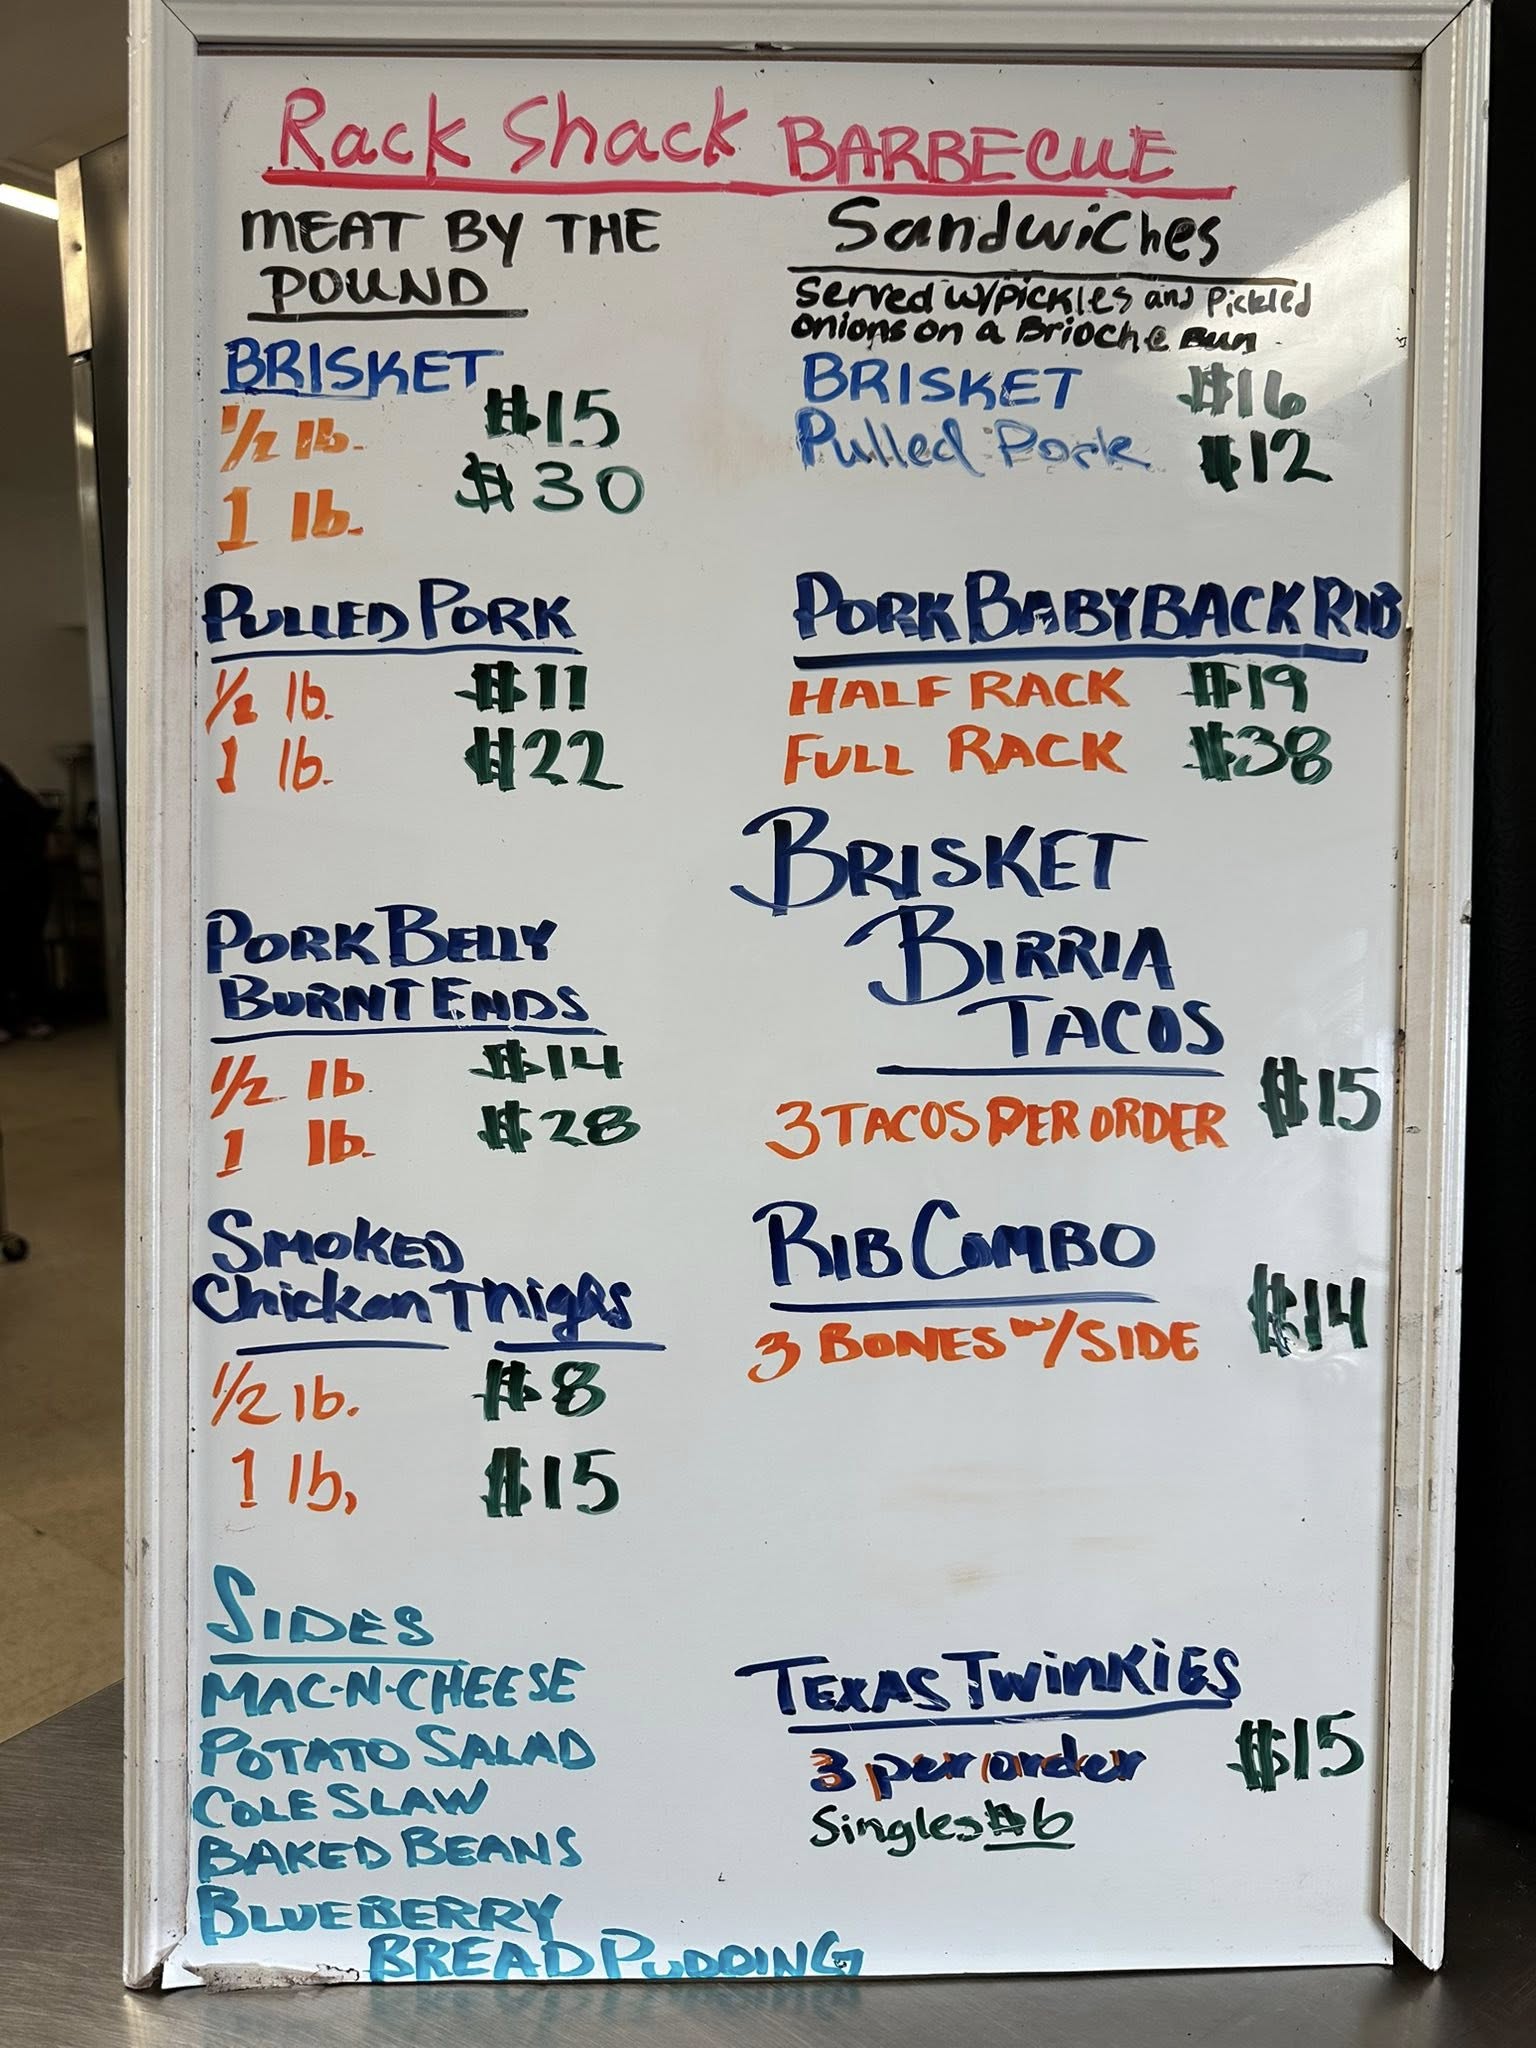 Rack Shack BARBECUE
MEAT BY THE
POUND
BRISKET
1/2 lb. $15
1 lb. $30
PULLED PORK
1/2 lb. $11
1 lb. $22
PORK BELLY
BURNT ENDS
1/2 lb $14
1 lb. $28
SMOKED
Chicken Thighs
1/2 lb. $8
1 lb, $15
SIDES
MAC-N-CHEESE
POTATO SALAD
COLE SLAW
BAKED BEANS
BLUEBERRY
BREAD PUDDING
Sandwiches
Served w/pickles and Pickled
onions on a Brioche Bun
BRISKET $16
Pulled Pork $12
PORK BABY BACK RIB
HALF RACK $19
FULL RACK $38
BRISKET
BIRRIA
TACOS
3 TACOS PER ORDER $15
RIB COMBO
3 BONES w/SIDE $14
TEXAS TWINKIES
3 per order $15
Singles $6